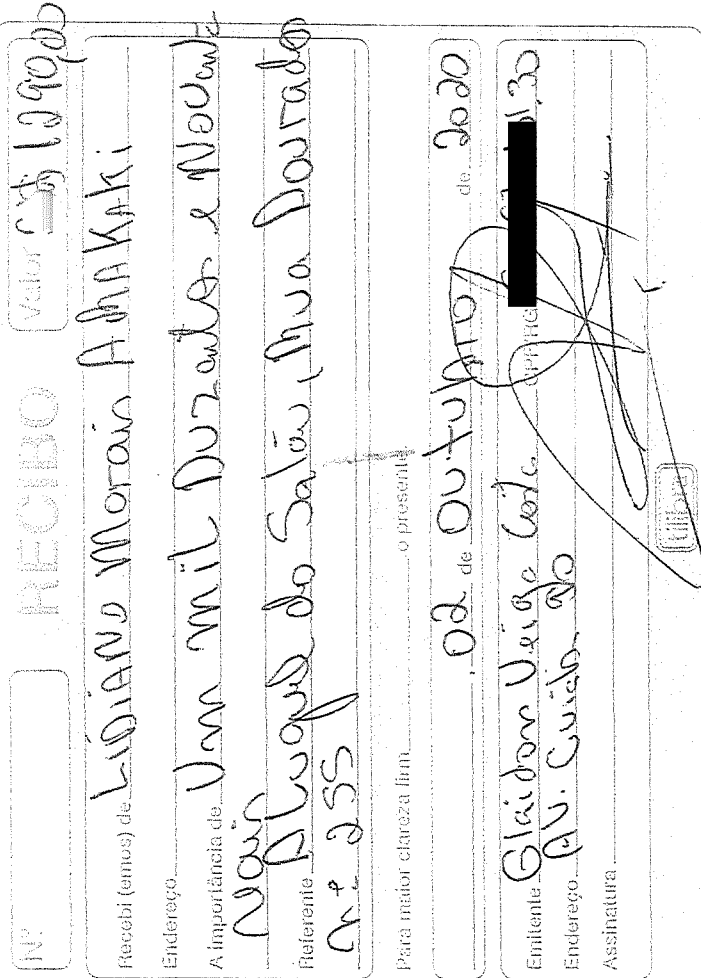 Nº RECIBO Valor R$ 1290,00
Recebi (emos) de LIDIANO Morais AMAKAKi
Endereço
A importância de Um Mil Duzentos e Novent
Nair
Referente Aluguel do Salão, Rua Dourados
nº 255
Para maior clareza firm o presente
02 de OUTUbro de 2020
Emitente Glaidon Veiga Costa
Endereço AV. Cuiabá
Assinatura
tilibra